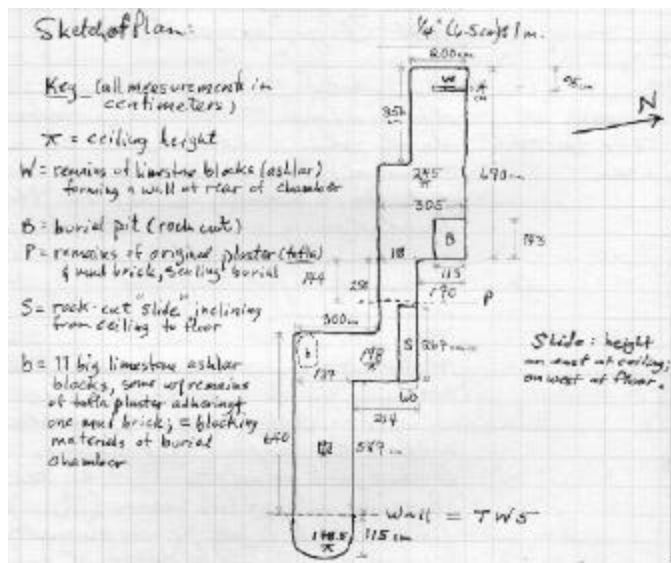 Sketch of Plan:
Key (all measurements in
centimeters)
π = ceiling height
W = remains of limestone blocks (ashlar)
forming a wall at rear of chamber
B = burial pit (rock cut)
P = remains of original plaster (tafla)
& mud brick, sealing burial
S = rock-cut "slide" inclining
from ceiling to floor
b = 11 big limestone ashlar
blocks, some w/ remains
of tafla plaster adhering &
one mud brick; = blocking
materials of burial
chamber
200 cm
W
N
245
π
305
B
143
115
190
P
144
300 cm
b
S
267
Slide: height
on east at ceiling;
on west at floor.
137
60
214
640
Wall = TW5
π
115 cm